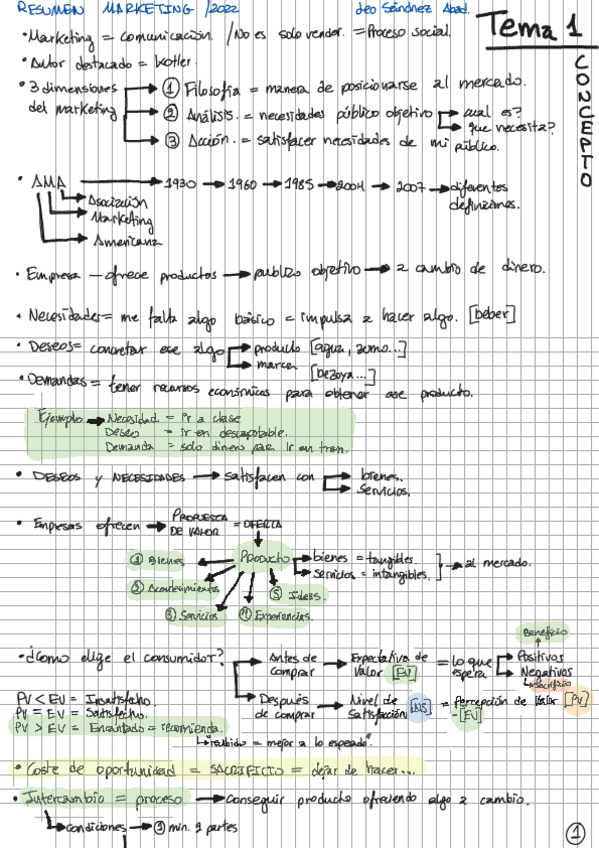 RESUMEN MARKETING /2022 Leo Sánchez Abad. Tema 1
CONCEPTO
• Marketing = comunicación. / No es solo vender. = Proceso social.
• Autor destacado = Kotler.
• 3 dimensiones del marketing → ① Filosofía = manera de posicionarse al mercado.
→ ② Análisis. = necesidades público objetivo → cual es?
→ que necesita?
→ ③ Acción. = satisfacer necesidades de mi público.
• AMA → 1930 → 1960 → 1985 → 2004 → 2007 → diferentes definiciones.
→ Asociación
→ Marketing
→ Americana
• Empresa — ofrece productos → publico objetivo → a cambio de dinero.
• Necesidades = me falta algo básico = impulsa a hacer algo. [beber]
• Deseos = concretar ese algo → producto [agua, zumo...]
→ marca [bezoya...]
• Demandas = tener recursos económicos para obtener ese producto.
Ejemplo → Necesidad = Ir a clase
Deseo = ir en descapotable.
Demanda = solo dinero para ir en tren.
• DESEOS Y NECESIDADES → satisfacen con → bienes.
→ Servicios.
• Empresas ofrecen → PROPUESTA DE VALOR = OFERTA
Producto → bienes = tangibles.
→ Servicios = intangibles. ] → al mercado.
① Bienes
② Acontecimientos
③ Servicios
④ Experiencias.
⑤ Ideas.
Beneficio
• ¿Como elige el consumidor? → Antes de comprar → Expectativa de Valor [EV] = lo que espera → Positivos
→ Negativos
→ Sacrificio
→ Después de comprar → Nivel de Satisfacción [NS] = Percepción de Valor [PV] - [EV]
PV < EV = Insatisfecho.
PV = EV = Satisfecho.
PV > EV = Encantado = recomienda.
↳ recibido = mejor a lo esperado"
• Coste de oportunidad = SACRIFICIO = dejar de hacer...
• Intercambio = proceso → Conseguir producto ofreciendo algo a cambio.
↳ condiciones → ① min. 2 partes
①